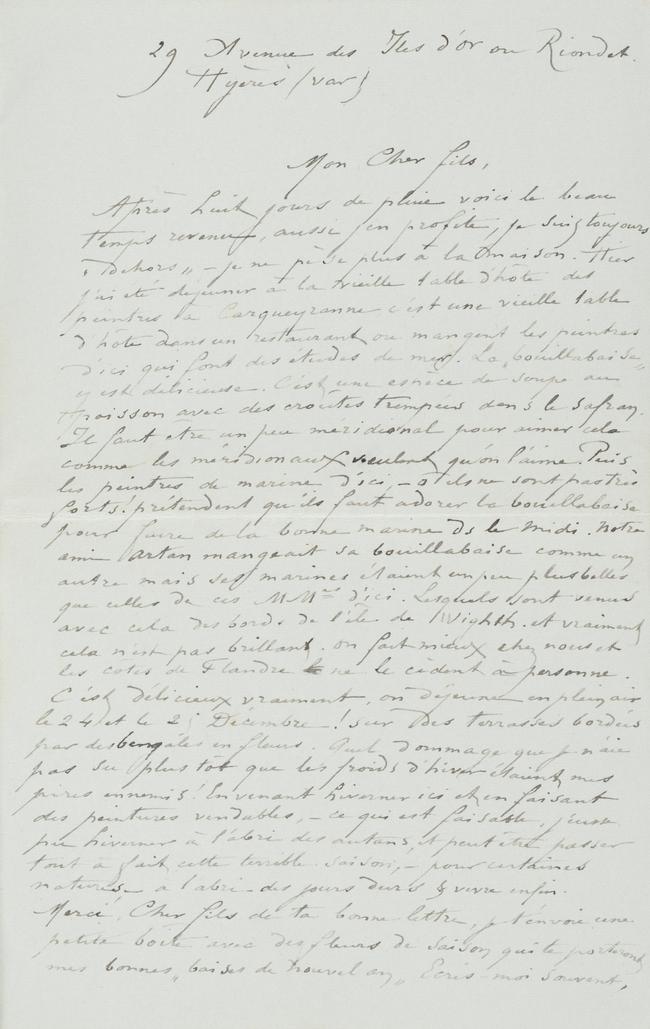 29 Avenue des Iles d'or ou Riondet.
Hyères (var)
Mon Cher fils,
Après huit jours de pluie voici le beau
temps revenu, aussi j'en profite, je suis toujours
"dehors" – je ne pèse plus à la maison. Hier
j'ai été déjeuner à la vieille table d'hôte des
peintres à Carqueyranne c'est une vieille table
d'hôte dans un restaurant ou mangent les peintres
d'ici qui font des études de mer. La "bouillabaise"
y est délicieuse. C'est une espèce de soupe au
poisson avec des croûtes trempées dans le safran.
Il faut etre un peu méridional pour aimer cela
comme les méridionaux veulent qu'on l'aime. Puis
les peintres de marine d'ici, – ô ils ne sont pas très
forts! prétendent qu'ils faut adorer la bouillabaise
pour faire de la bonne marine ds le Midi. Notre
ami Artan mangeait sa bouillabaise comme un
autre mais ses marines étaient un peu plus belles
que celles de ces MMrs d'ici. Lesquels sont venus
avec cela des bords de l'île de Wighth. et vraiment
cela n'est pas brillant. on fait mieux chez nous et
les côtes de Flandre ne le cèdent à personne.
C'est délicieux vraiment, on déjeune en plein air
le 24 et le 25 Décembre! sur des terrasses bordées
par des bengales en fleurs. Quel dommage que je n'aie
pas su plus tôt que les froids d'hiver étaient mes
pires ennemis! En venant hiverner ici et en faisant
des peintures vendables, – ce qui est faisable, j'eusse
pu hiverner à l'abri des autans, et peut être passer
tout à fait cette terrible saison, – pour certaines
natures – à l'abri – des jours durs & vivre enfin.
Merci, Cher fils de ta bonne lettre, je t'envoie une
petite boîte avec des fleurs de saison qui te porteront
mes bonnes "baises de nouvel an" Ecris-moi souvent,